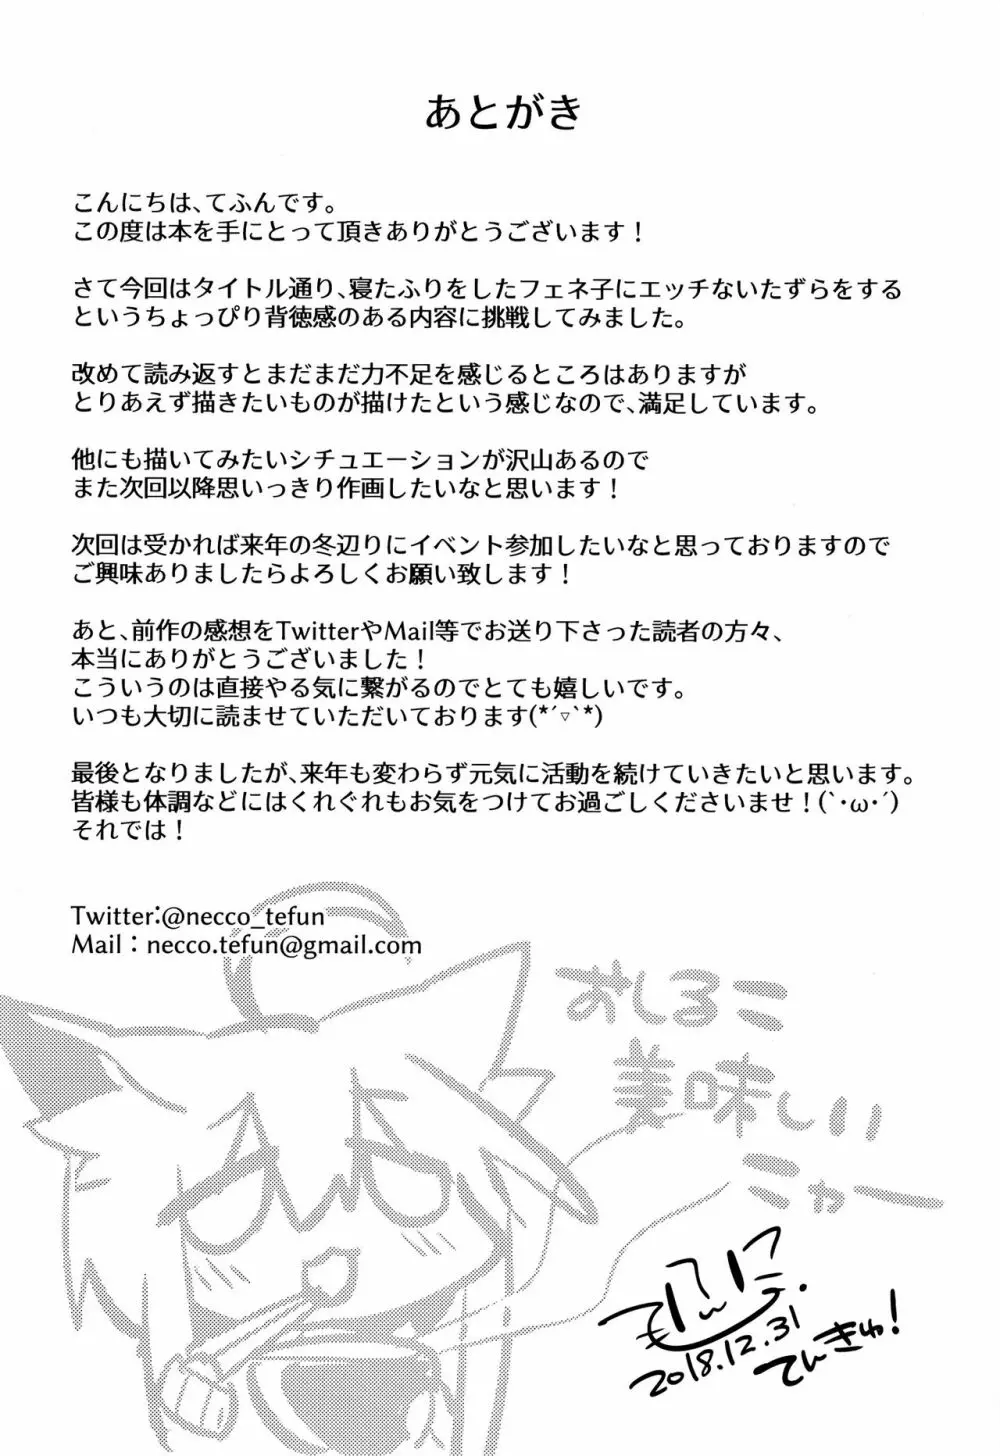 あとがき
こんにちは、てふんです。
この度は本を手にとって頂きありがとうございます！
さて今回はタイトル通り、寝たふりをしたフェネ子にエッチないたずらをする
というちょっぴり背徳感のある内容に挑戦してみました。
改めて読み返すとまだまだ力不足を感じるところはありますが
とりあえず描きたいものが描けたという感じなので、満足しています。
他にも描いてみたいシチュエーションが沢山あるので
また次回以降思いっきり作画したいなと思います！
次回は受かれば来年の冬辺りにイベント参加したいなと思っておりますので
ご興味ありましたらよろしくお願い致します！
あと、前作の感想をTwitterやMail等でお送り下さった読者の方々、
本当にありがとうございました！
こういうのは直接やる気に繋がるのでとても嬉しいです。
いつも大切に読ませていただいております(*´▽`*)
最後となりましたが、来年も変わらず元気に活動を続けていきたいと思います。
皆様も体調などにはくれぐれもお気をつけてお過ごしくださいませ！(`･ω･´)
それでは！
Twitter:@necco_tefun
Mail：necco.tefun@gmail.com
おしるこ
美味しい
こゃー
2018.12.31
てんきゅ！